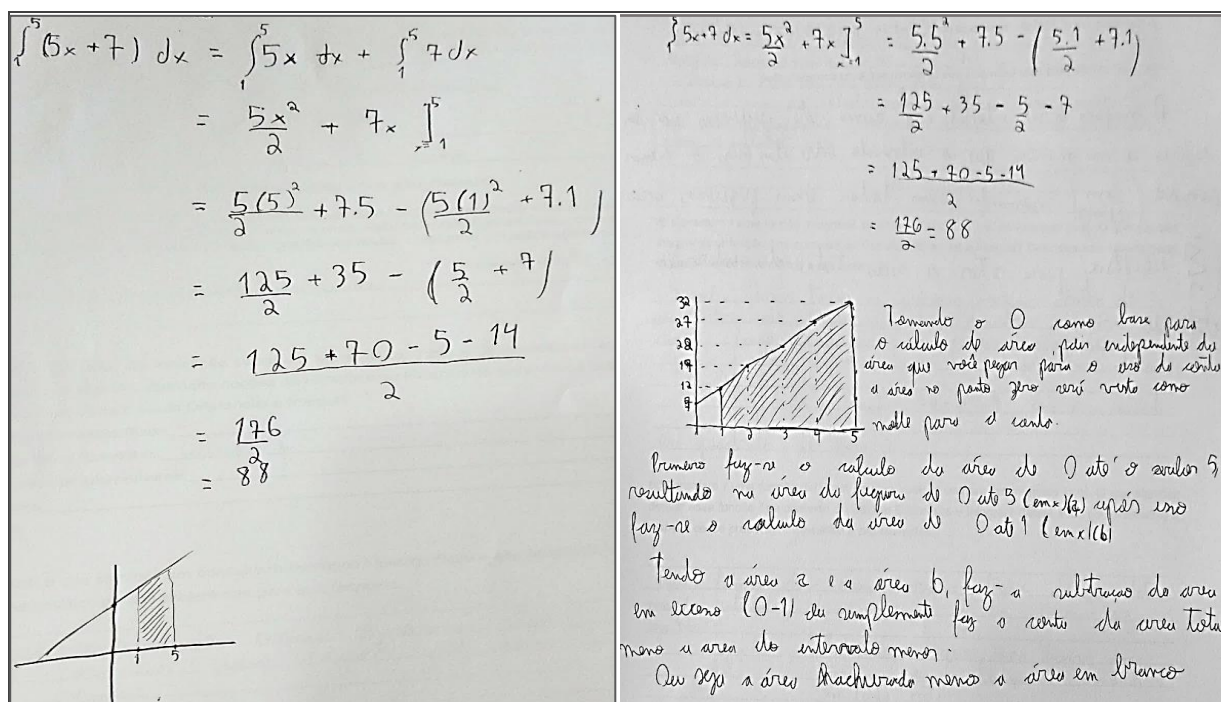 ∫₁⁵ (5x + 7) dx = ∫₁⁵ 5x dx + ∫₁⁵ 7 dx
= 5x²/2 + 7x ]⁵ₓ₌₁
= 5(5)²/2 + 7.5 - (5(1)²/2 + 7.1)
= 125/2 + 35 - (5/2 + 7)
= 125 + 70 - 5 - 14 / 2
= 176/2
= 88
1 5
∫⁵ 5x+7 dx = 5x²/2 + 7x ]⁵ₓ₌₁ = 5.5²/2 + 7.5 - (5.1/2 + 7.1)
= 125/2 + 35 - 5/2 - 7
= 125 + 70 - 5 - 14 / 2
= 176/2 = 88
32
27
17
12
1 2 3 4 5
Tomando o 0 como base para
o cálculo de área, pois independente da
área que você pegar para o uso do
a área no ponto zero será visto como
para a conta.
Primeiro faz-se o calculo da área de 0 até o valor 5,
resultando na área da figura de 0 até 5 (em x)(a) após isso
faz-se o calculo da área de 0 até 1 (em x)(b)
Tendo a área a e a área b, faz-a subtração da area
em (0-1) ou simplemente faz a conta da area total
meno a area do intervalo menor.
Ou seja a área hachurada menos a área em branco